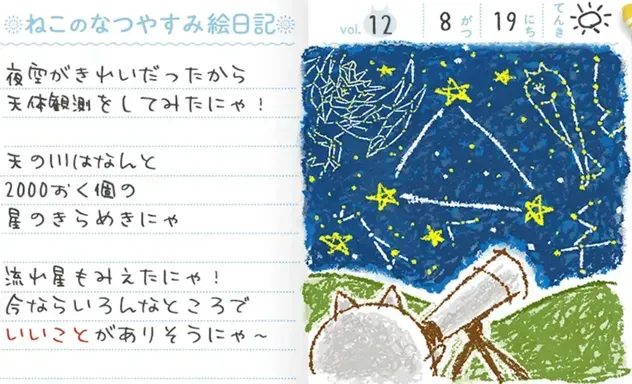 ねこのなつやすみ絵日記
vol. 12
8 がつ 19 にち てんき
夜空がきれいだったから
天体観測をしてみたにゃ！
天の川はなんと
2000おく個の
星のきらめきにゃ
流れ星もみえたにゃ！
今ならいろんなところで
いいことがありそうにゃ～